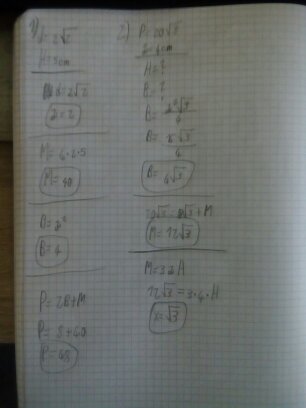 1) d=2√2
H=5cm
a√2=2√2
a=2
M=4·2·5
M=40
B=a²
B=4
P=2B+M
P=8+40
P=48
2) P=20√3
a=4cm
H=?
B=?
B=a²√3/4
B=√3/4
B=4√3
20√3=8√3+M
M=12√3
M=3aH
12√3=3·4·H
=√3